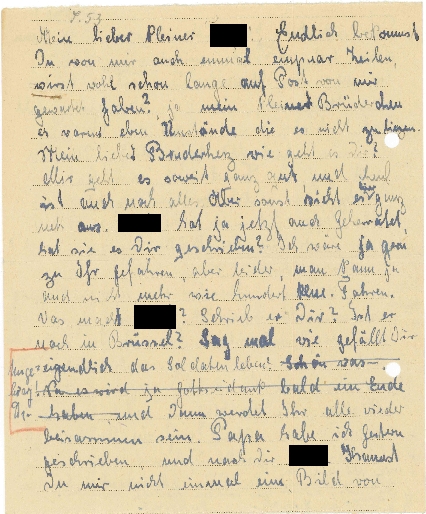 7.53
Mein lieber kleiner Endlich bekommst
Du von mir auch einmal einpaar Zeilen,
wirst wohl schon lange auf Post von mir
gewartet haben? ja mein kleines Brüderchen
es waren eben Umstände die es nicht zuliesen.
Mein liebes Bruderherz wie geht es Dir?
Mir geht es soweit ganz gut, und
ist auch noch alles. Aber sonst nicht ganz
aus. hat ja jetzt auch geheiratet,
hat sie es Dir geschrieben? Ich wäre ja gern
zu Ihr gefahren, aber leider, man kann ja
auch nicht mehr wie hundert klm. fahren.
Was macht ? Schrieb er Dir? Ist er
noch in Brüssel? Sag mal wie gefällt Dir
eigendlich das Soldatenleben? Schön was
Na es wird ja Gott sei dank bald ein Ende
haben und dann werdet Ihr alle wieder
beisammen sein. Papa habe ich gestern
geschrieben und nach Dir Kannst
Du mir nicht einmal ein Bild von